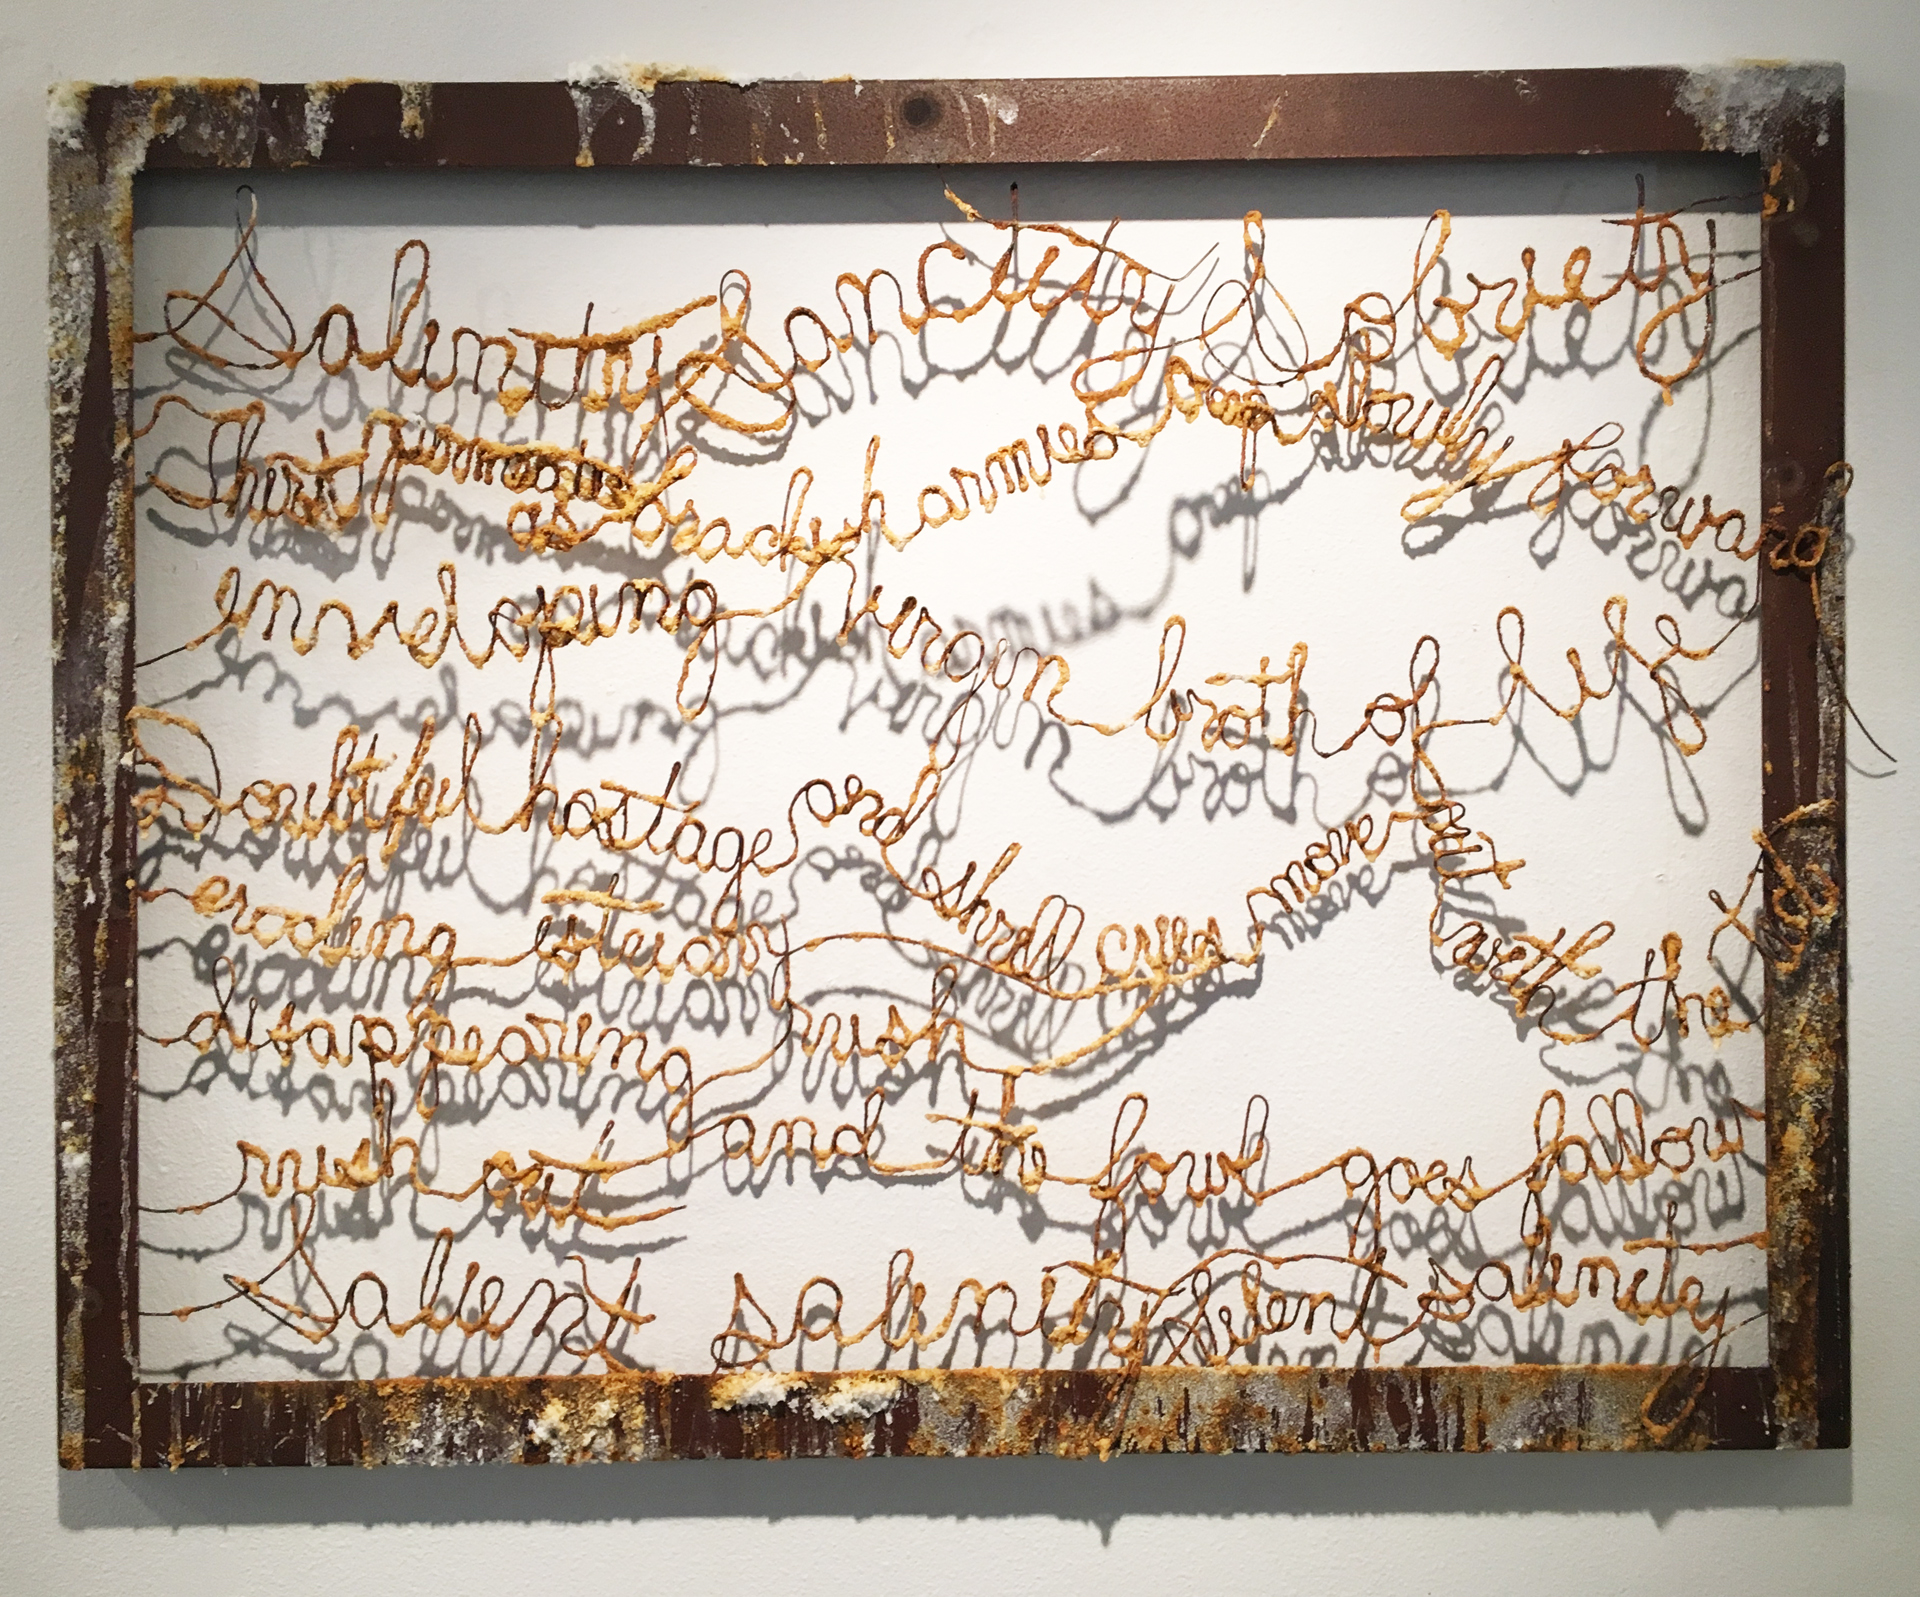 Salinity Sanctity Sobriety
Thirst as brackish armies slowly forward
enveloping virgin broth of life
Doubtful hostage and shrill cries move out with the
eroding estuary
disappearing rush
rush out and the fowl goes fallow
Salient salinity silent salinity